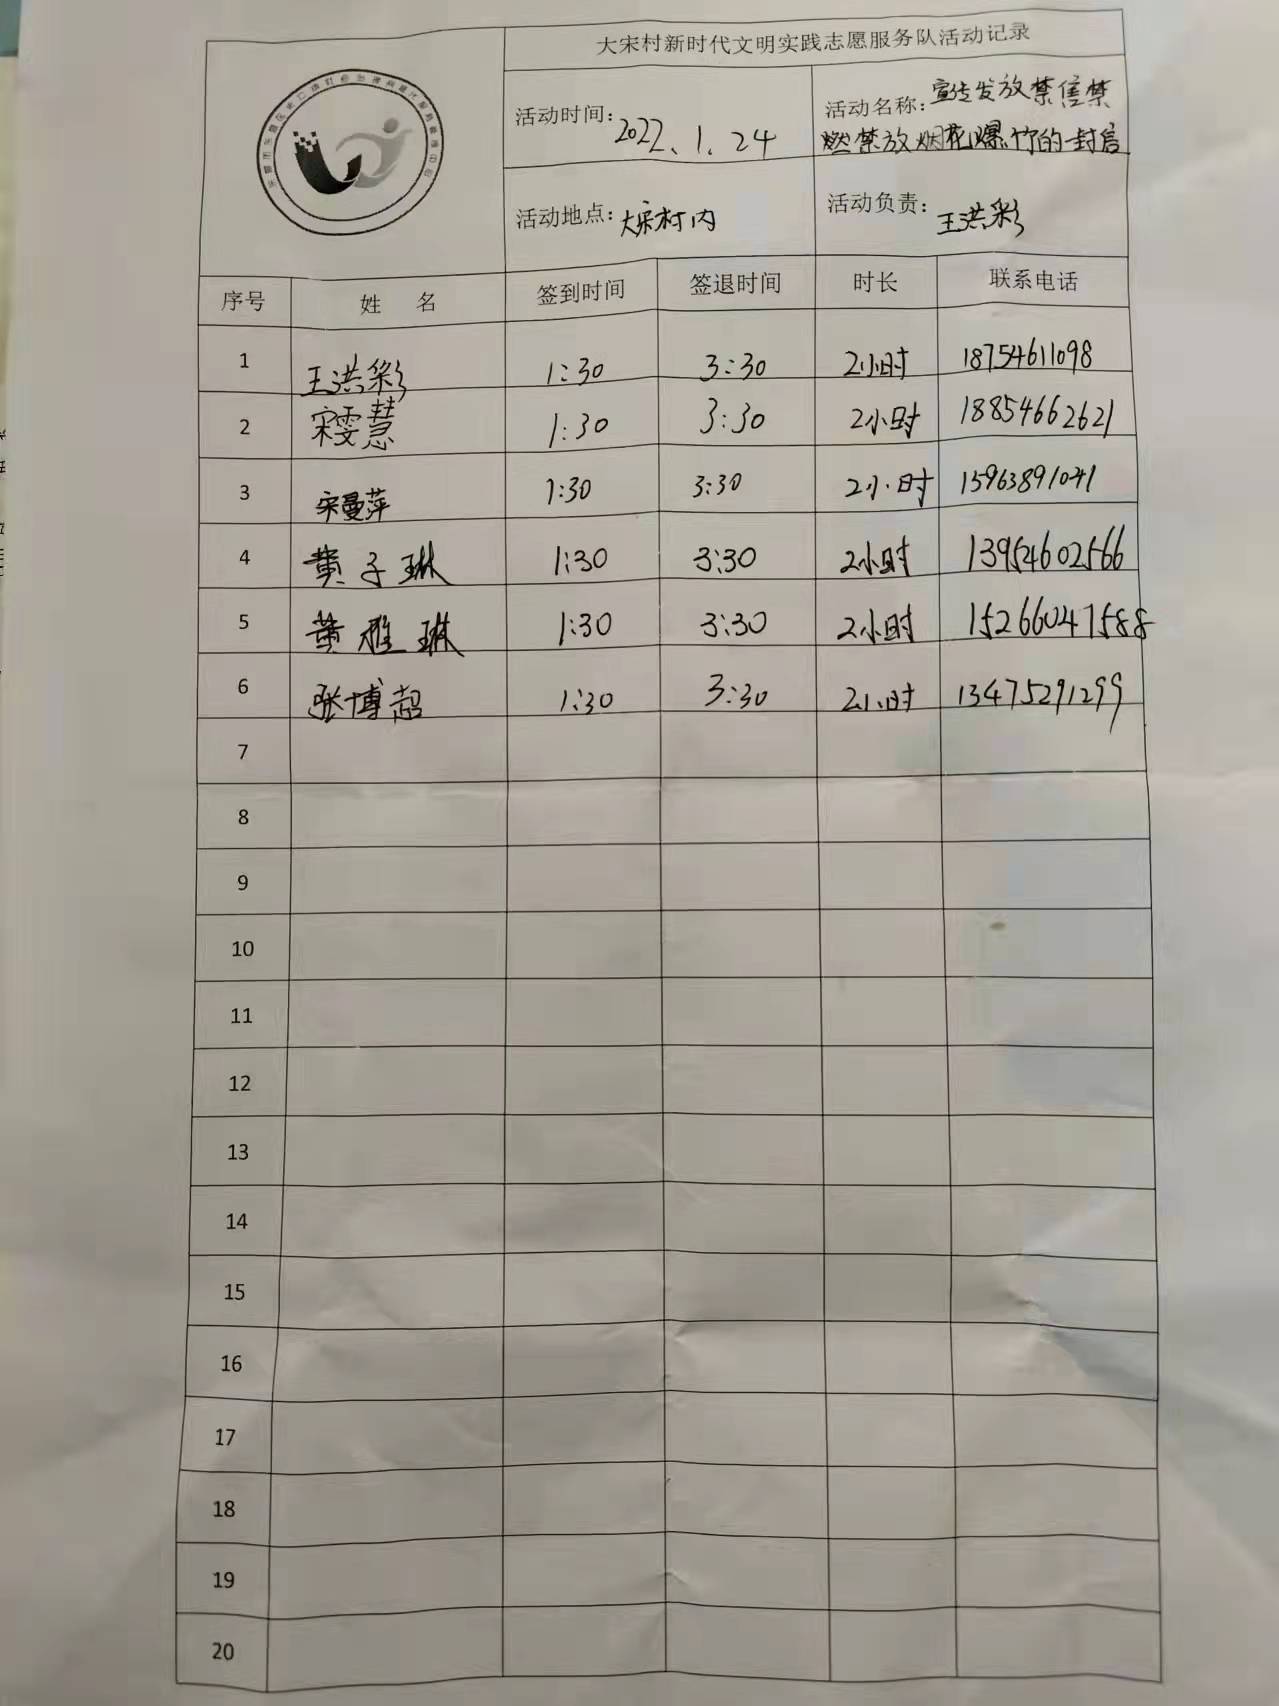 大宋村新时代文明实践志愿服务队活动记录
活动时间：2022.1.24
活动名称：宣传发放禁售禁
燃禁放烟花爆竹的一封信
活动地点：大宋村内
活动负责：王洪彩
序号 姓 名 签到时间 签退时间 时长 联系电话
1 王洪彩 1:30 3:30 2小时 18754611098
2 宋雯慧 1:30 3:30 2小时 18854662621
3 宋曼萍 1:30 3:30 2小时 15963891041
4 黄子琳 1:30 3:30 2小时 13954602566
5 黄雅琳 1:30 3:30 2小时 15266047588
6 张博超 1:30 3:30 2小时 13475291299
7
8
9
10
11
12
13
14
15
16
17
18
19
20